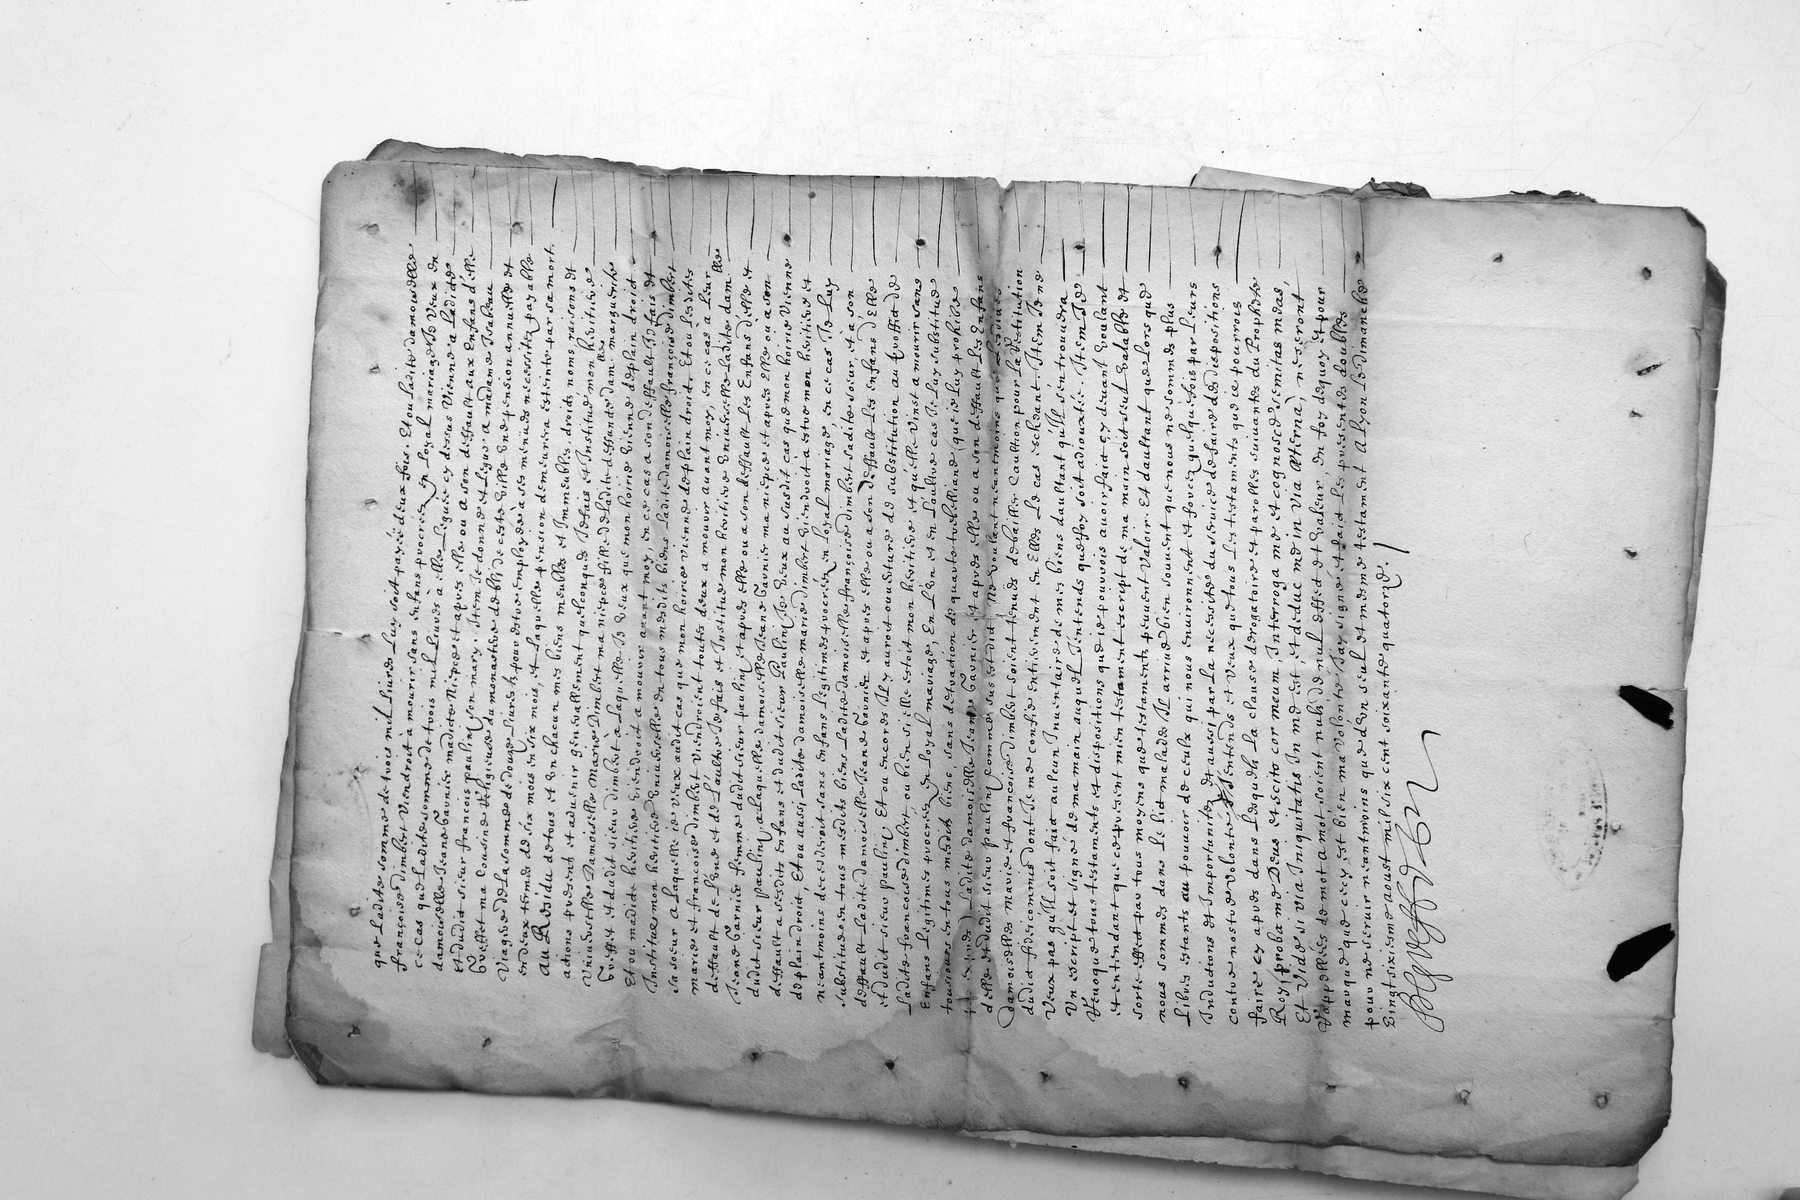 que ladite somme de trois mil livres luy soit payée deux fois. Et ou ladite damoiselle
françoise dimbert Viendroit à mourir sans enfans procreez en loyal mariage Je Veux en
ce cas que ladite somme de trois mil livres à elle léguée cy dessus Vienne a ladicte
damoiselle Jeane Garnier madite Niepce et apres elle ou a son deffault aux Enfans d'elle
et dudit sieur francois paulin son mary. Item Je donne et Legue a madame Isabeau
ma cousine Religieuse du monastere de ceste Ville Une pension annuelle et
Viagere de la somme de douze livres pour estre employée à ses menues necessitez payable
en deux termes de six mois en six mois, et laquelle pension demeurera esteinte par sa mort.
Au Residu de tous et Un chacun mes biens meubles et Immeubles droits noms raisons et
actions presents et aduenir generallement quelconques Je fais et Institue mon heritiere
Vniuerselle Damoiselle Marie Dimbert ma niepce fille de ladite deffante dam.elle marguerite
et dudit sieur dimbert à laquelle Je Veux que mon hoirie Vienne de plain droit
Et ou madite heritiere Viendroit a mourir auant moy, en ce cas a son deffault Je fais et
Institue mon heritiere Vniuerselle en tous mesdits biens ladite damoiselle françoise dimbert
sa soeur a laquelle ie Veux audit cas que mon hoirie Vienne de plain droit. Et ou lesdites
marie et francoise dimbert Viendroient toutes deux a mourir auant moy, en ce cas a leur
deffault de l'une et de l'aultre Je fais et Institue mon heritiere Vniuerselle ladite dam.elle
Jeane Garnier femme dudit sieur paulin et apres elle ou a son deffault les Enfans d'elle et
dudit sieur paulin, a laquelle damoiselle Jeane Garnier ma niepce et apres elle ou a son
deffault a sesdits enfans et dudit sieur Paulin Je Veux au susdit cas que mon hoirie Vienne
de plain droit, Et ou aussi ladite damoiselle marie dimbert Viendroit a estre mon heritiere et
neantmoins decederoit sans enfans legitimes procreez en loyal mariage, en ce cas Je Luy
substitue en tous mesdits biens ladite damoiselle françoise dimbert sadite soeur, et a son
deffault ladite damoiselle Jeane Garnier et apres elle ou a son deffault les enfans d'Elle
et dudit sieur paulin Et ou encores Il y auroit ouuerture de substitution au proffit de
ladite francoise dimbert, ou bien si elle estoit mon heritiere et qu'elle Vinst a mourir sans
Enfans legitimes procreez en loyal mariage, En l'un et en l'aultre cas Je luy substitue
tousiours en tous mesdits biens, sans detraction de quarte trebelliane (que ie luy prohibe
ladite damoiselle Jeane Garnier et apres elle ou a son deffault les Enfans
d'elle et dudit sieur paulin comme sus est dit Ne Voulant neantmoins que lesdites
Damoiselles marie et francoise dimbert soient tenues de bailler Caultion pour la restitution
dudit fideicommis dont Je me confie entierement en Elles le cas escheant. Item Je ne
Veux pas qu'Il soit fait aulcun Inuentaire de mes biens daultant qu'Il s'en trouuera
Vn escript et signé de ma main auquel J'entends que foy soit adioustée. Item Je
Reuoque tous testaments et dispositions que ie pouuois auoir faict cy deuant Voulant
et entendant que ce present mien testament escript de ma main soit seul Valable et
sorte effect par tous moyens que testaments peuuent Valoir. Et daultant que Lors que
nous sommes dans le lict malades Il arriue bien souuent que nous ne sommes plus
libres estants au pouuoir de ceulx qui nous enuironnent et forcez quelquefois par leurs
Inductions et Importunitez et aussi par la necessité du seruice de faire des dispositions
contre nostre Volonté J'entends et Veux que tous les testaments que ie pourrois
faire cy apres dans Lesquels la clause derogatoire et parolles suiuantes du Prophete
Roy (proba me Deus et scito cor meum, Interroga me et cognosce semitas meas,
Et Vide si via Iniquitatis In me est, et deduc me in Via AEterna), ne seront
Rappellées de mot a mot, soient nuls de nul effect et Valeur, en foy dequoy et pour
marque que cecy est bien ma Volonté J'ay signé et faict Les presentes doubles
pour ne seruir neantmoins que d'un seul et mesme testament a Lyon le dimanche
Vingt sixiesme aoust mil six cent soixante quatorze.